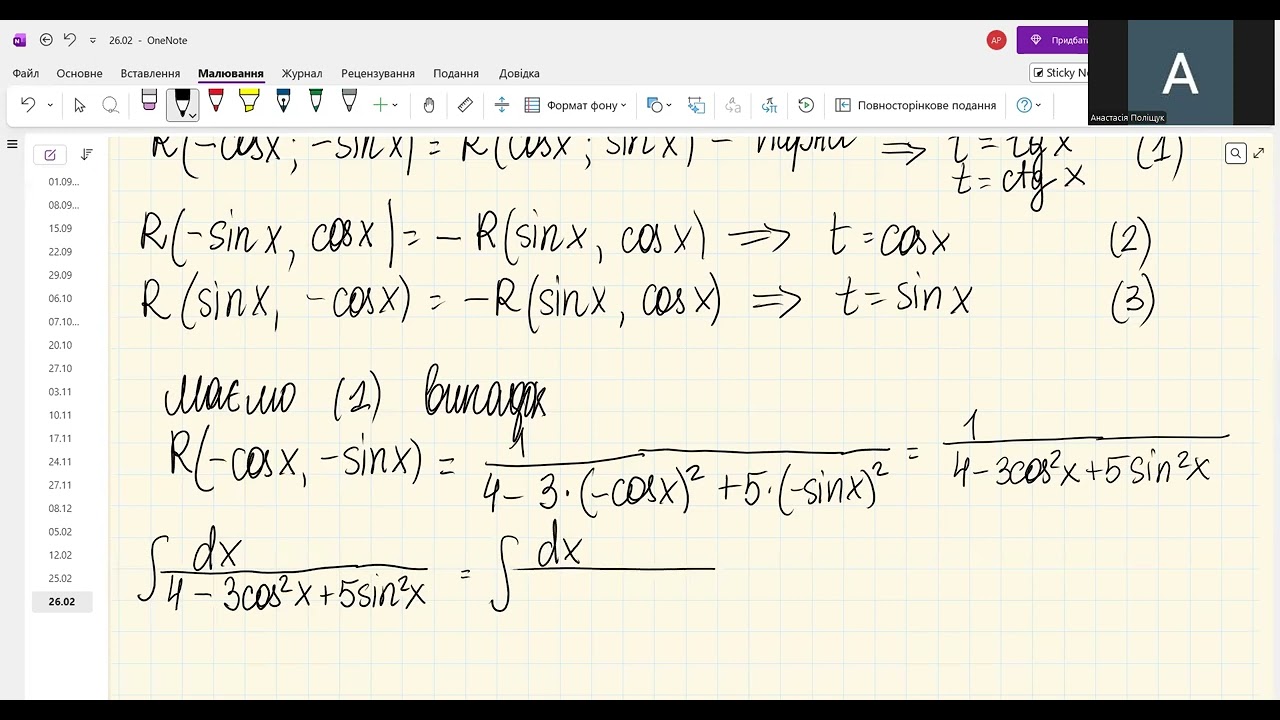 26.02 - OneNote
AP
Придбати
Файл Основне Вставлення Малювання Журнал Рецензування Подання Довідка
Sticky No
Формат фону Повносторінкове подання
A
Анастасія Поліщук
01.09...
08.09...
15.09
22.09
29.09
06.10
07.10...
20.10
27.10
03.11
10.11
17.11
24.11
27.11
08.12
05.02
12.02
25.02
26.02
R(-cosx; -sinx) = R(cosx; sinx) - парна => t = tgx (1)
t = ctg x
R(-sinx, cosx) = - R(sinx, cosx) => t = cosx (2)
R(sinx, -cosx) = -R(sinx, cosx) => t = sinx (3)
Маємо (1) випадок
R(-cosx, -sinx) = 1/(4 - 3·(-cosx)² + 5·(-sinx)²) = 1/(4 - 3cos²x + 5sin²x)
∫ dx/(4 - 3cos²x + 5sin²x) = ∫ dx